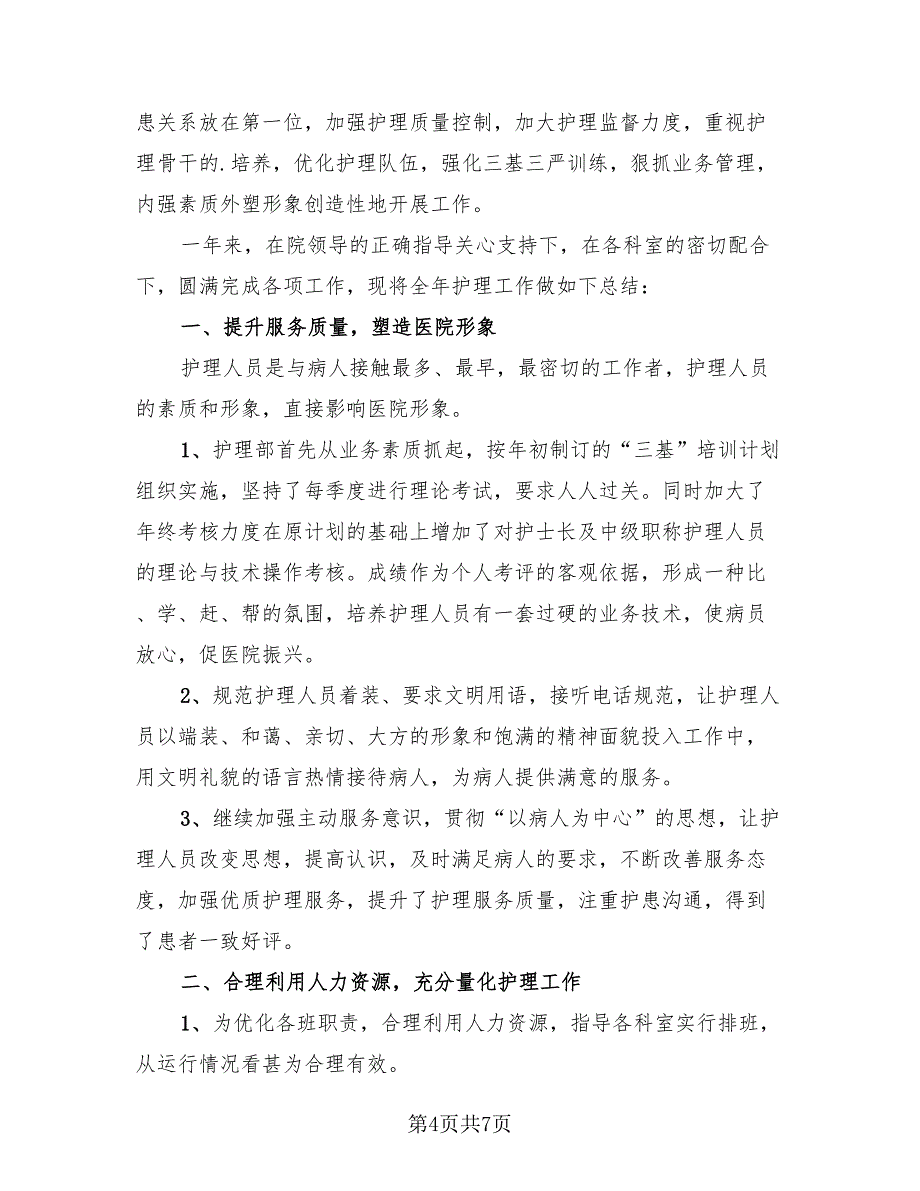 患关系放在第一位，加强护理质量控制，加大护理监督力度，重视护
理骨干的.培养，优化护理队伍，强化三基三严训练，狠抓业务管理，
内强素质外塑形象创造性地开展工作。
一年来，在院领导的正确指导关心支持下，在各科室的密切配合
下，圆满完成各项工作，现将全年护理工作做如下总结：
一、提升服务质量，塑造医院形象
护理人员是与病人接触最多、最早，最密切的工作者，护理人员
的素质和形象，直接影响医院形象。
1、护理部首先从业务素质抓起，按年初制订的“三基”培训计划
组织实施，坚持了每季度进行理论考试，要求人人过关。同时加大了
年终考核力度在原计划的基础上增加了对护士长及中级职称护理人员
的理论与技术操作考核。成绩作为个人考评的客观依据，形成一种比
、学、赶、帮的氛围，培养护理人员有一套过硬的业务技术，使病员
放心，促医院振兴。
2、规范护理人员着装、要求文明用语，接听电话规范，让护理人
员以端装、和蔼、亲切、大方的形象和饱满的精神面貌投入工作中，
用文明礼貌的语言热情接待病人，为病人提供满意的服务。
3、继续加强主动服务意识，贯彻“以病人为中心”的思想，让护
理人员改变思想，提高认识，及时满足病人的要求，不断改善服务态
度，加强优质护理服务，提升了护理服务质量，注重护患沟通，得到
了患者一致好评。
二、合理利用人力资源，充分量化护理工作
1、为优化各班职责，合理利用人力资源，指导各科室实行排班，
从运行情况看甚为合理有效。
第4页共7页